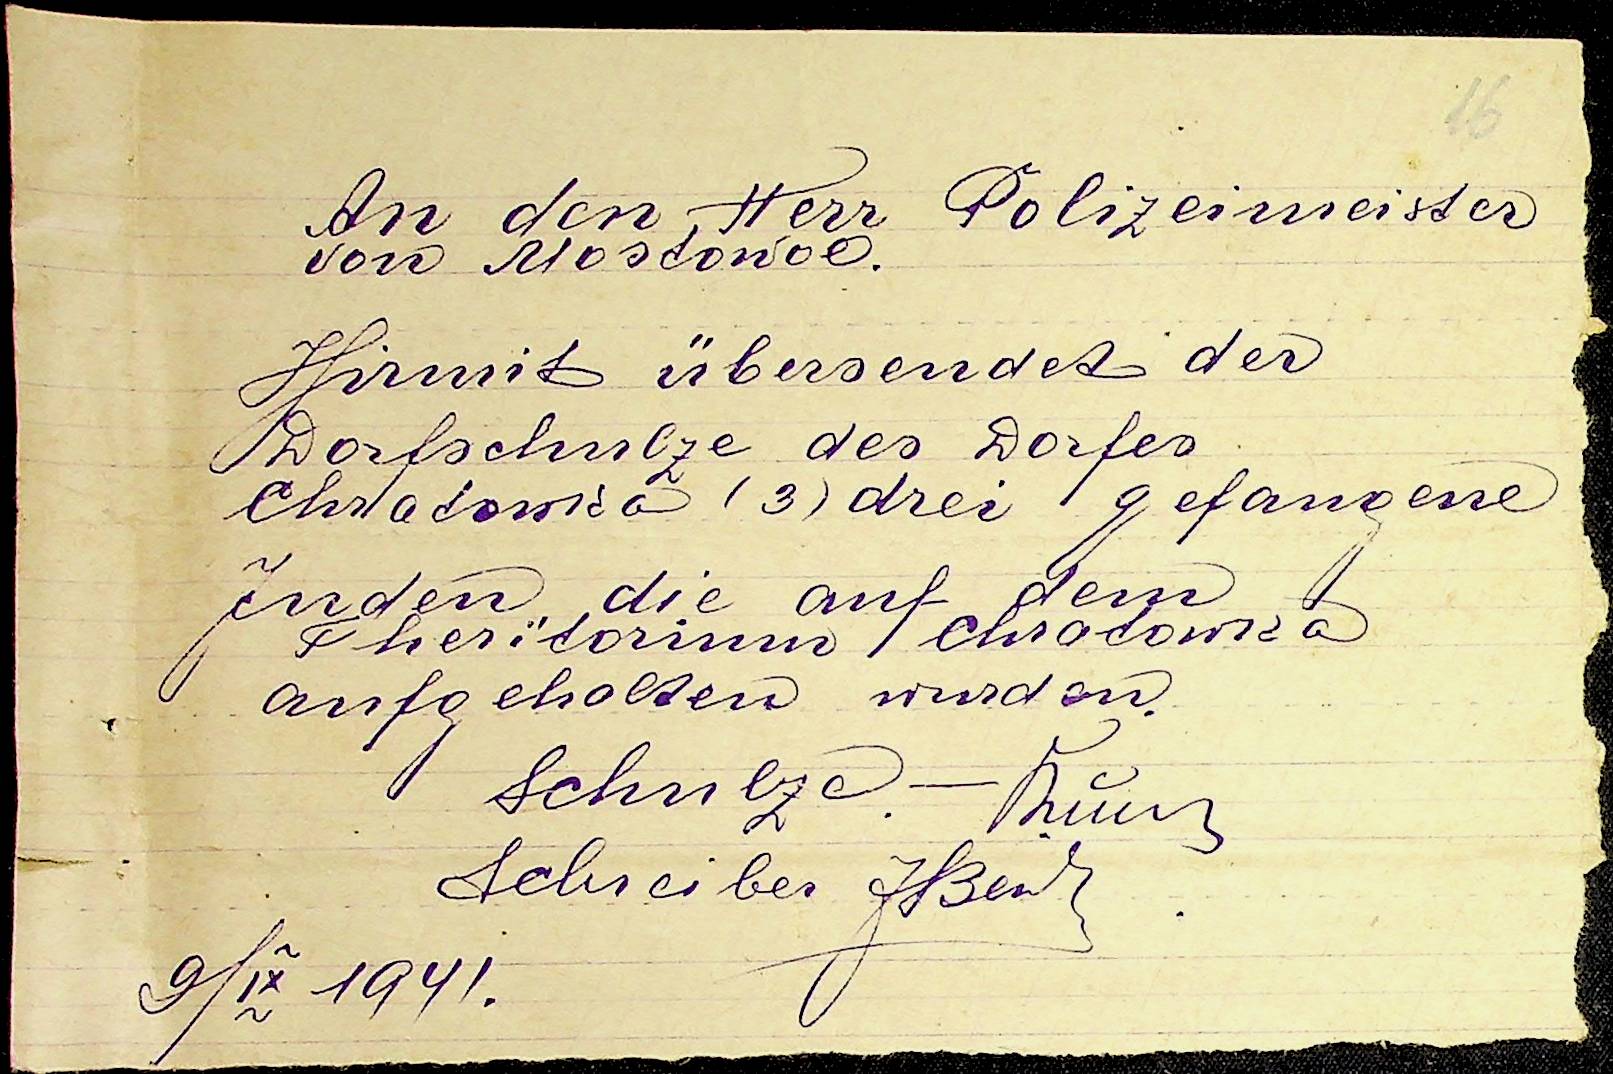 16
An den Herr Polizeimeister
von Mostowoe.
Hirmit übersendet der
Dorfschulze des Dorfes
Chratowka (3) drei gefangene
Juden die auf dem
Theritorium Chratowka
aufgehalten wurden.
Schulze. —
Schreiber
9/IX 1941.